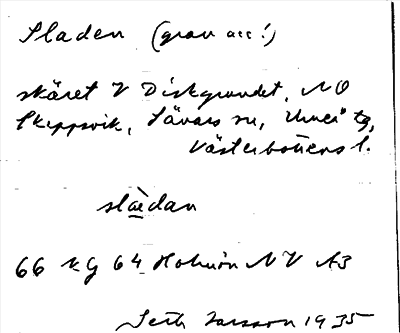 Sladen (grav acc!)
skäret V Diskgrundet, NO
Skeppsvik, Sävars sn, Umeå tg,
Västerbottens l.
slædan
66 KG 64 Holmön NV A3
Seth Larsson 1935